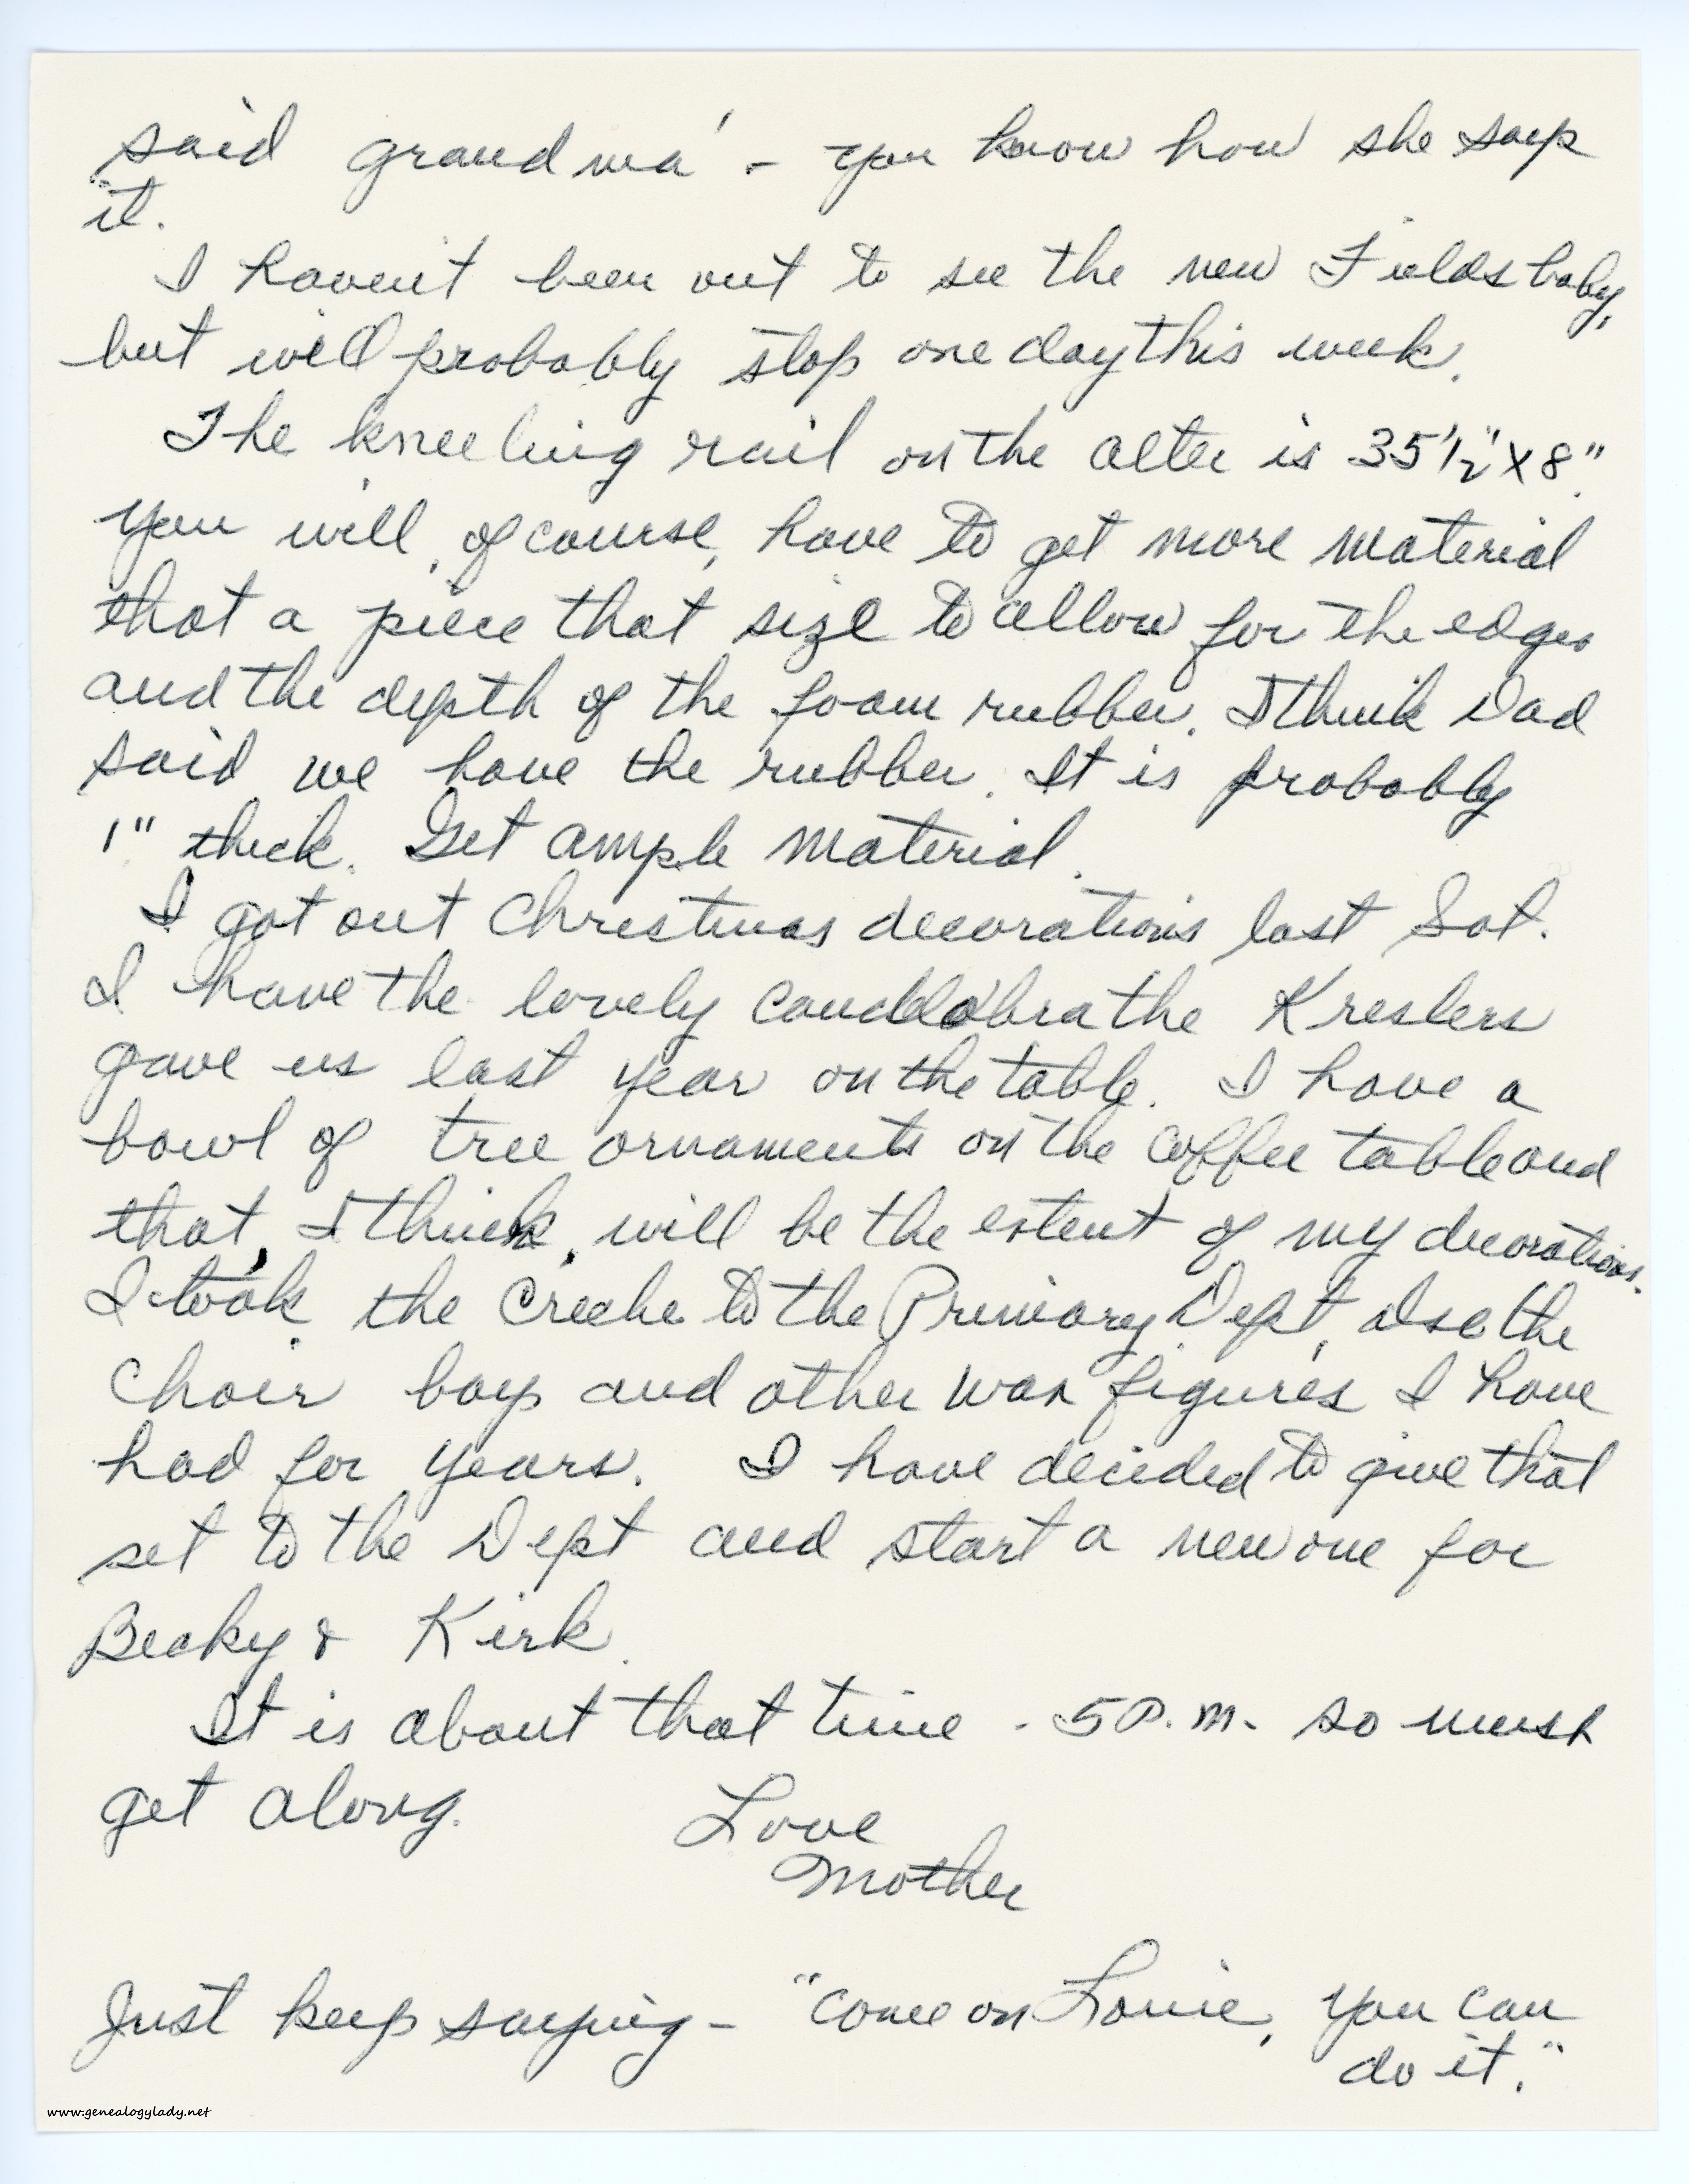 said grandma' - you know how she says
it.
I haven't been out to see the new Fields baby,
but will probably stop one day this week.
The kneeling rail on the alter is 35 1/2" X 8".
You will, of course, have to get more material
that a piece that size to allow for the edges
and the depth of the foam rubber. I think Dad
said we have the rubber. It is probably
1" thick. Get ample material.
I got out Christmas decorations last Sat.
I have the lovely candelabra the Kreslers
gave us last year on the table. I have a
bowl of tree ornaments on the coffee table and
that, I think, will be the extent of my decorations.
I took the Creche to the Primary Dept, also the
Choir boys and other wax figures I have
had for years. I have decided to give that
set to the Dept and start a new one for
Becky & Kirk.
It is about that time - 5 P.M. so must
get along.
Love
Mother
Just keep saying - "come on Louie, you can
do it."
www.genealogylady.net